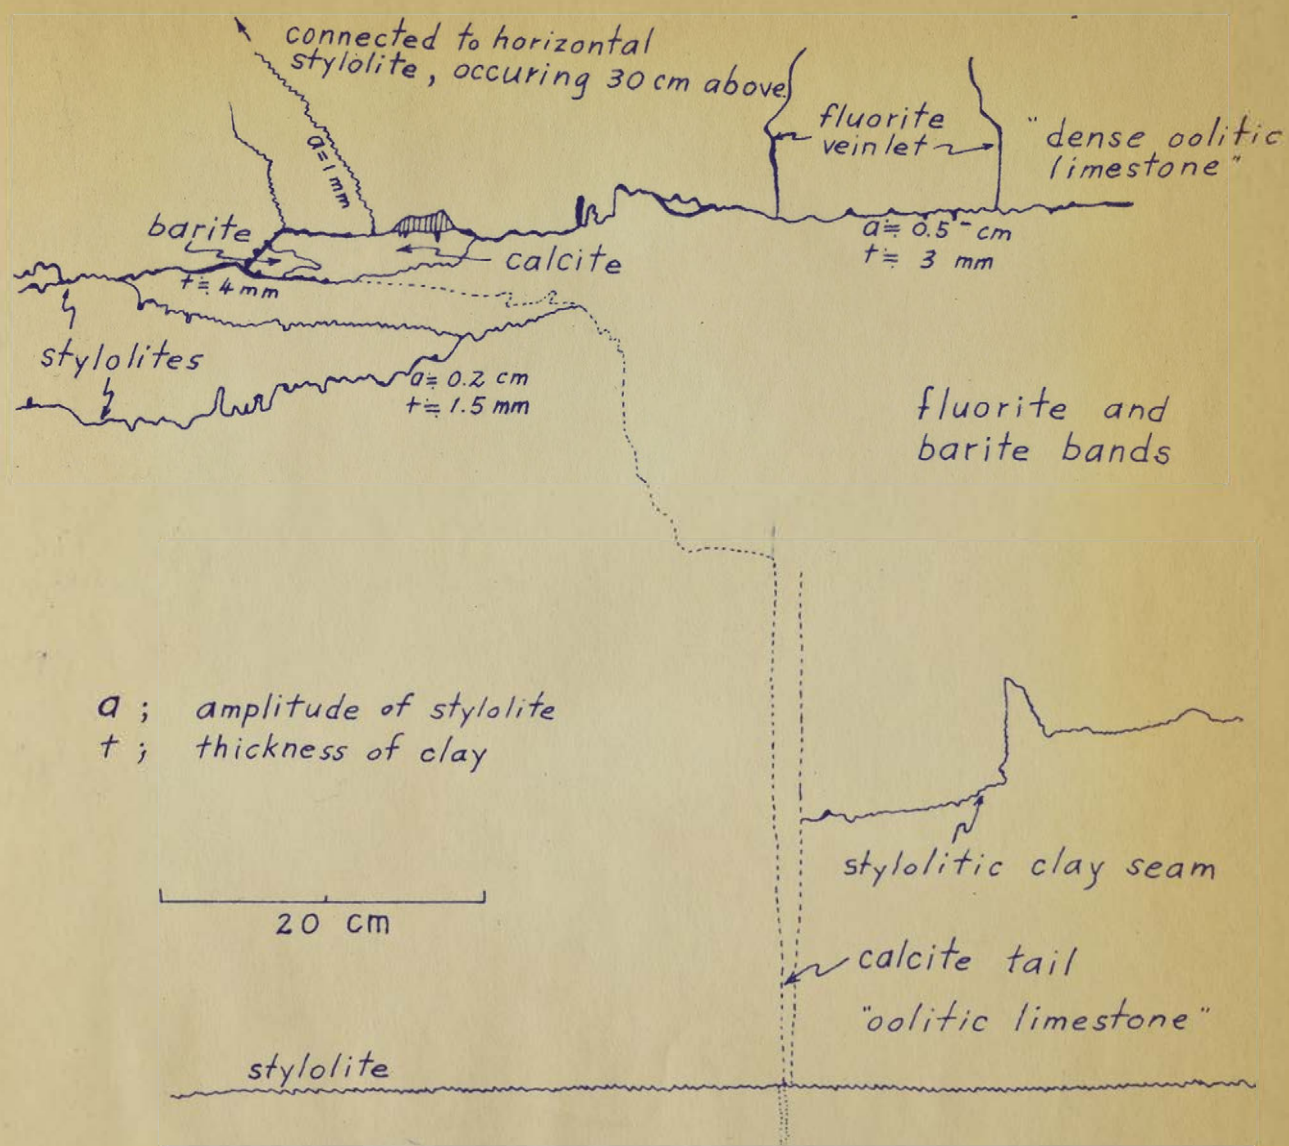 connected to horizontal
stylolite, occuring 30 cm above
a=1 mm
fluorite
veinlet
"dense oolitic
limestone"
barite
calcite
a≒0.5 cm
t≒ 3 mm
t≒4 mm
stylolites
a≒0.2 cm
t≒1.5 mm
fluorite and
barite bands
a; amplitude of stylolite
t; thickness of clay
stylolitic clay seam
20 cm
calcite tail
"oolitic limestone"
stylolite